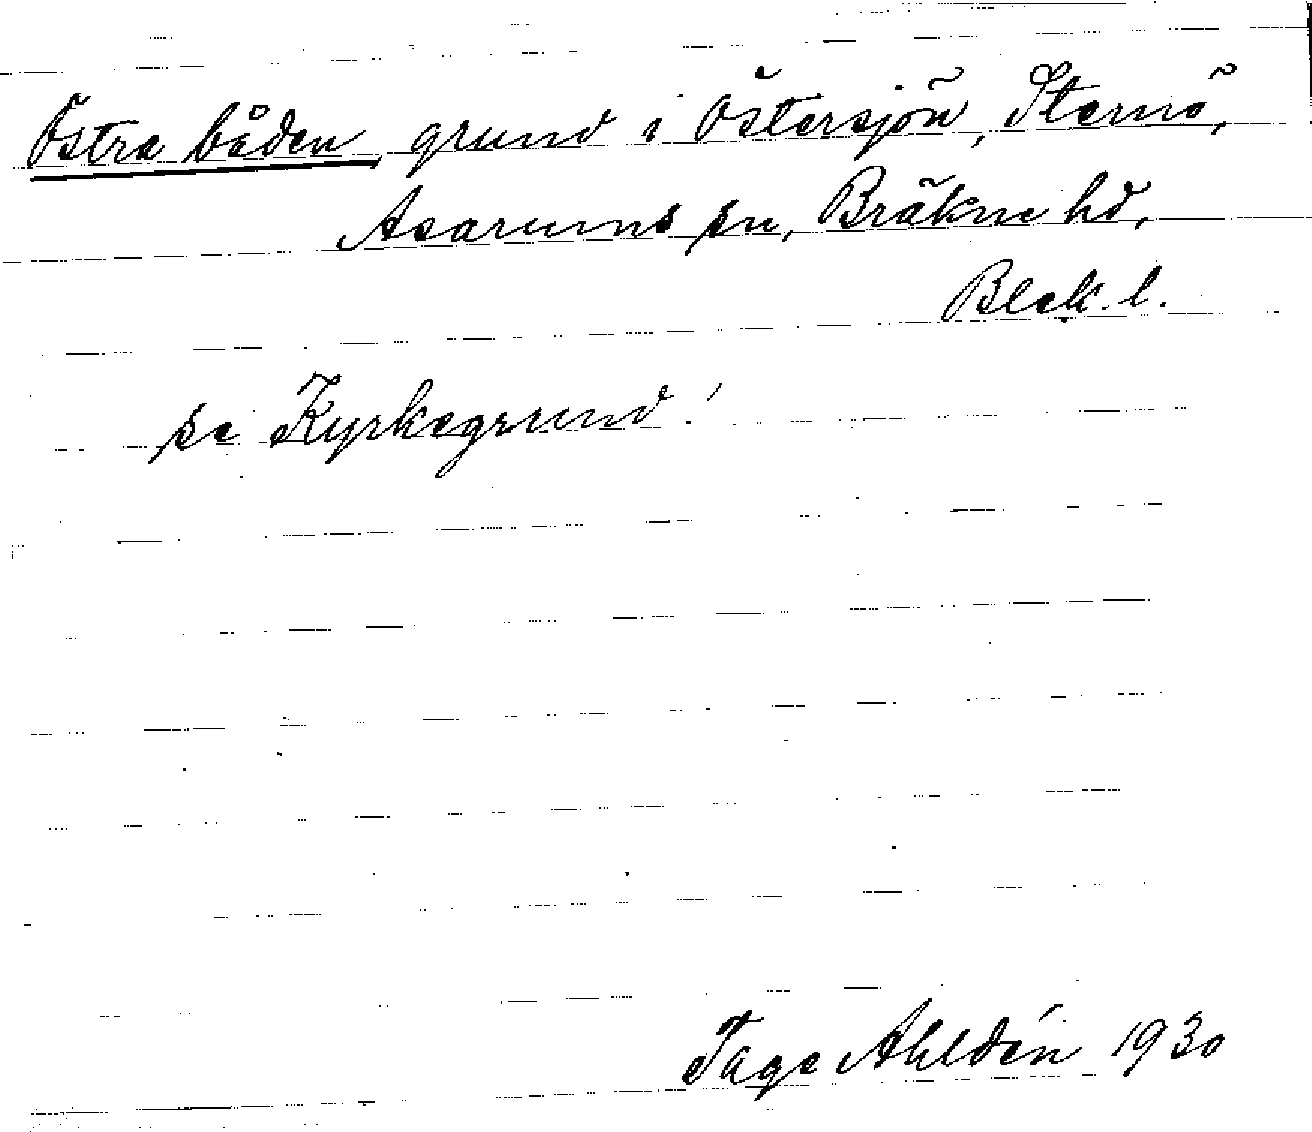 Östra båden grund i Östersjön, Sternö,
Asarums sn, Bräkne hd,
Blek. l.
se Kyrkogrund!
Tage Ahldén 1930